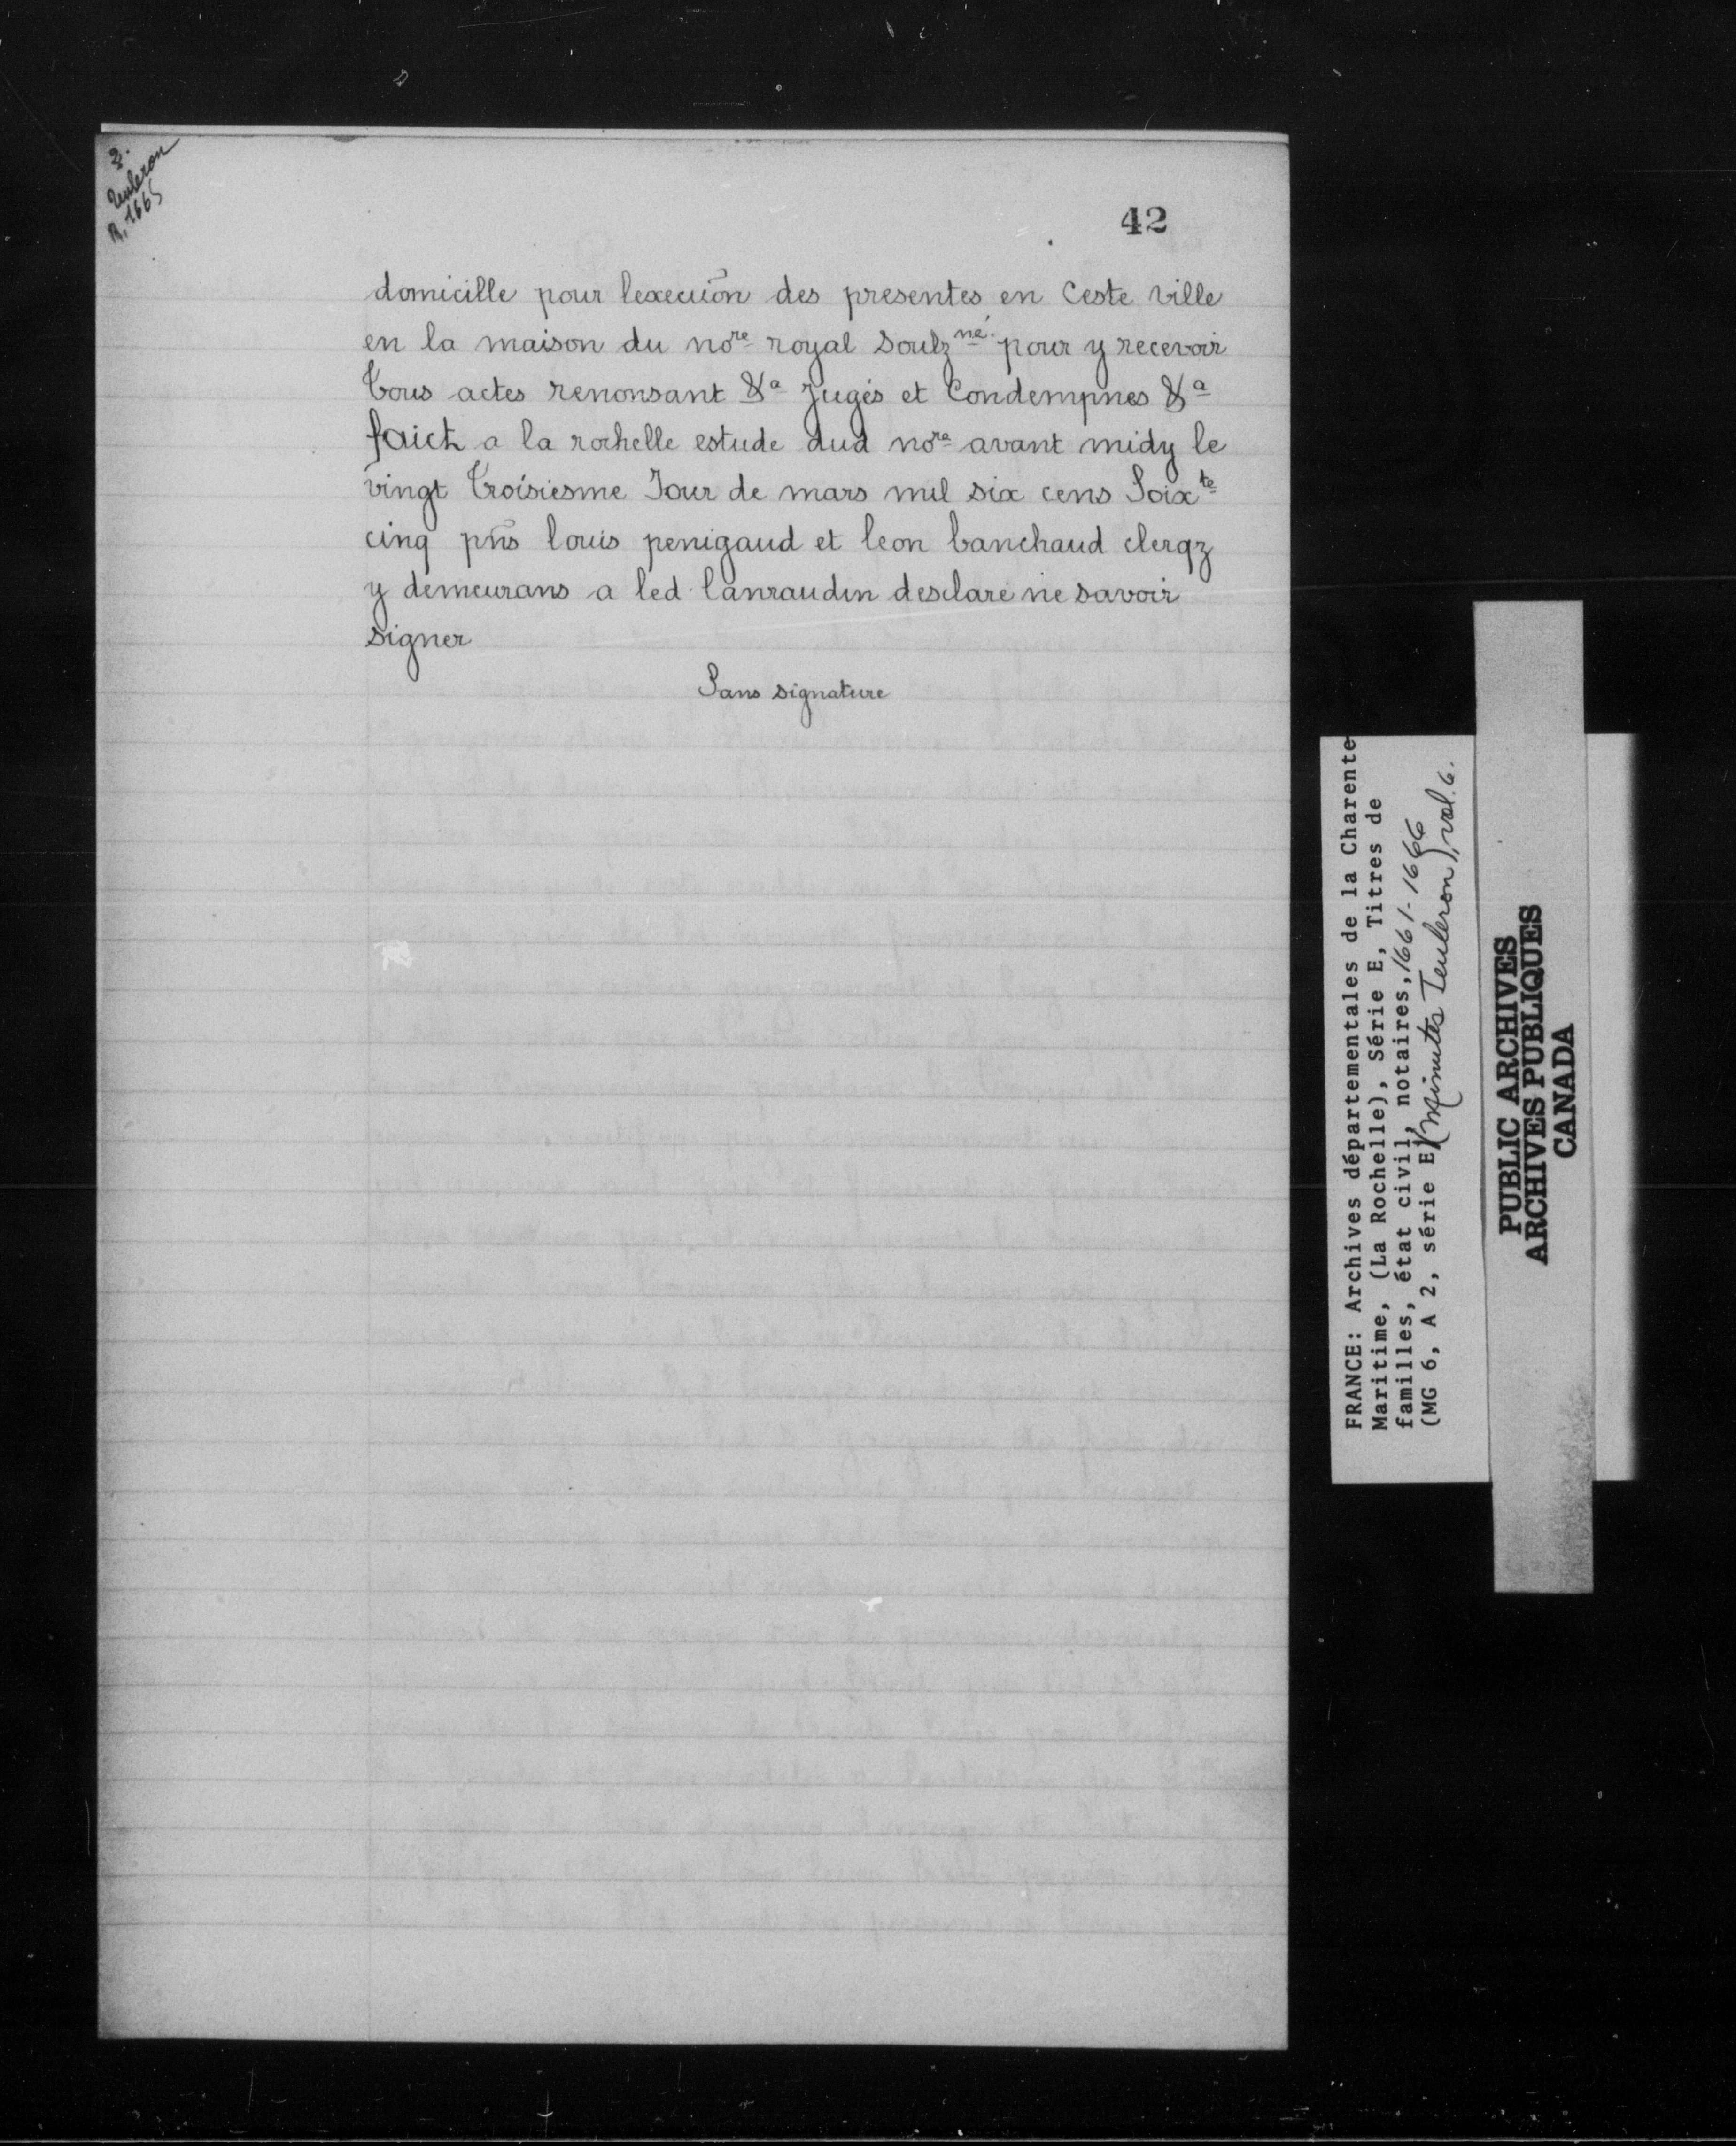 3.
Teuleron
R. 1665
42
domicille pour lexecuion des presentes en Ceste ville
en la maison du nore royal soulzné pour y recevoir
Tous actes renonsant &a Jugés et Condempnes &a
faict a la rochelle estude dud nore avant midy le
vingt Troisiesme Jour de mars mil six cens Soixte
cinq pñs louis penigaud et leon banchaud clerqz
y demeurans a led lanraudin desclaré ne savoir
signer
Sans signature
FRANCE: Archives départementales de la Charente
Maritime, (La Rochelle), Série E, Titres de
familles, état civil, notaires, 1661-1666
(MG 6, A 2, série E) (Minutes Teuleron), vol. 6.
PUBLIC ARCHIVES
ARCHIVES PUBLIQUES
CANADA